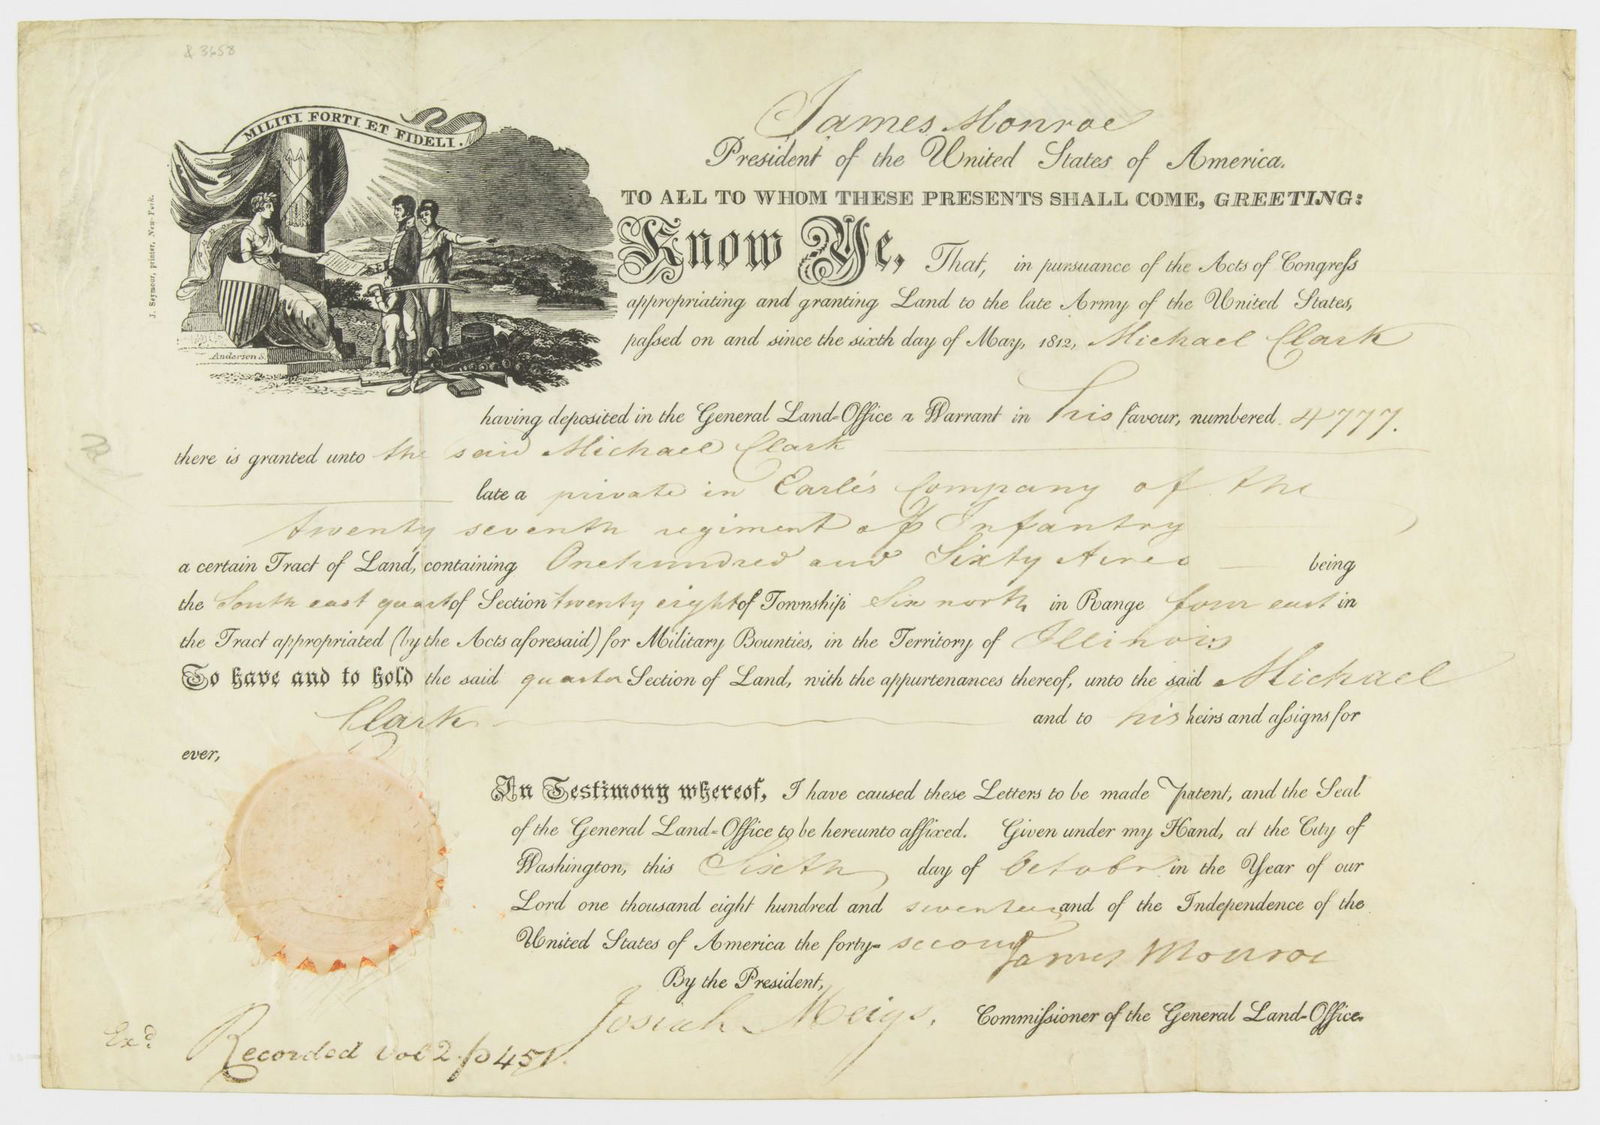 & 3658
MILITI FORTI ET FIDELI.
J. Seymour, printer, New-York.
Anderson S.
James Monroe
President of the United States of America.
TO ALL TO WHOM THESE PRESENTS SHALL COME, GREETING:
Know Ye, That, in pursuance of the Acts of Congreſs
appropriating and granting Land to the late Army of the United States,
paſsed on and since the sixth day of May, 1812, Michael Clark
having deposited in the General Land-Office a Warrant in his favour, numbered 4777.
there is granted unto the said Michael Clark
late a private in Earle's Company of the
twenty seventh regiment of Infantry
a certain Tract of Land, containing One hundred and Sixty Acres being
the South east quart of Section twenty eight of Township Six north in Range four east in
the Tract appropriated (by the Acts aforesaid) for Military Bounties, in the Territory of Illinois
To have and to hold the said quarter Section of Land, with the appurtenances thereof, unto the said Michael
Clark and to his heirs and aſsigns for
ever,
In Testimony whereof, I have caused these Letters to be made Patent, and the Seal
of the General Land-Office to be hereunto affixed. Given under my Hand, at the City of
Washington, this Sixth day of October in the Year of our
Lord one thousand eight hundred and seventeen and of the Independence of the
United States of America the forty-second
James Monroe
By the President,
Josiah Meigs, Commiſsioner of the General Land-Office.
Exd.
Recorded Vol 2. p 451.